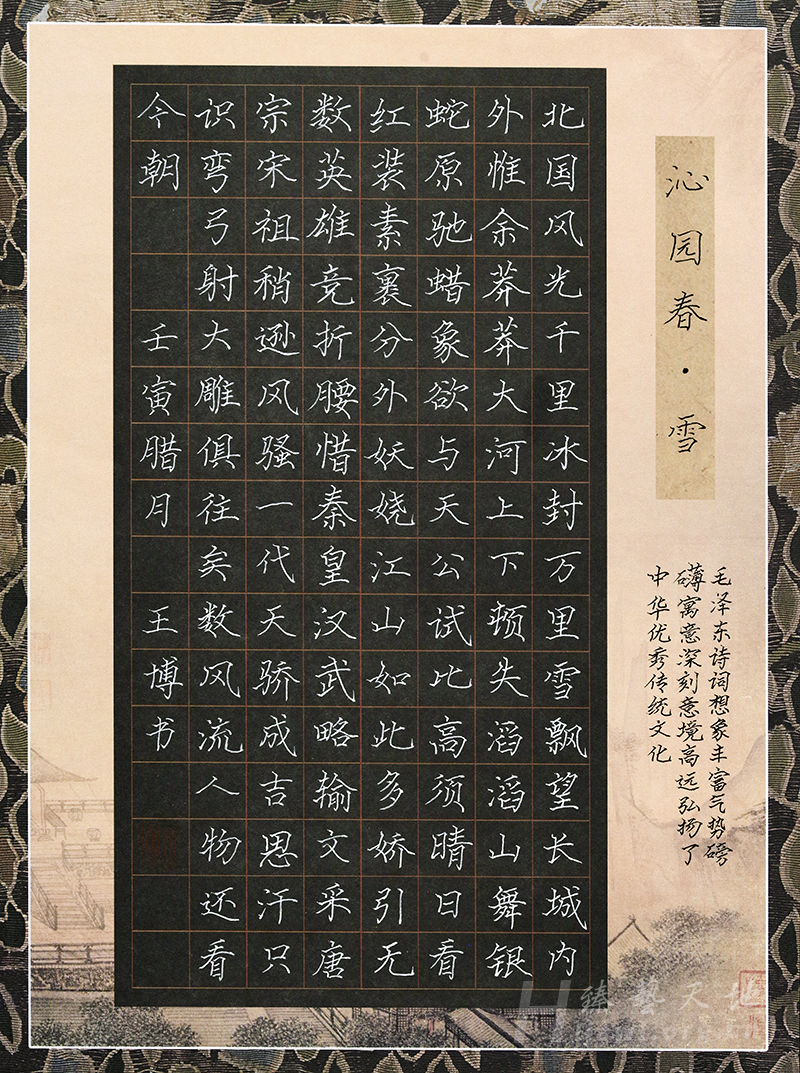 沁园春·雪
毛泽东诗词想象丰富气势磅
礴寓意深刻意境高远弘扬了
中华优秀传统文化
北国风光千里冰封万里雪飘望长城内
外惟余莽莽大河上下顿失滔滔山舞银
蛇原驰蜡象欲与天公试比高须晴日看
红装素裹分外妖娆江山如此多娇引无
数英雄竞折腰惜秦皇汉武略输文采唐
宗宋祖稍逊风骚一代天骄成吉思汗只
识弯弓射大雕俱往矣数风流人物还看
今朝 壬寅腊月 王博书
臻艺天地